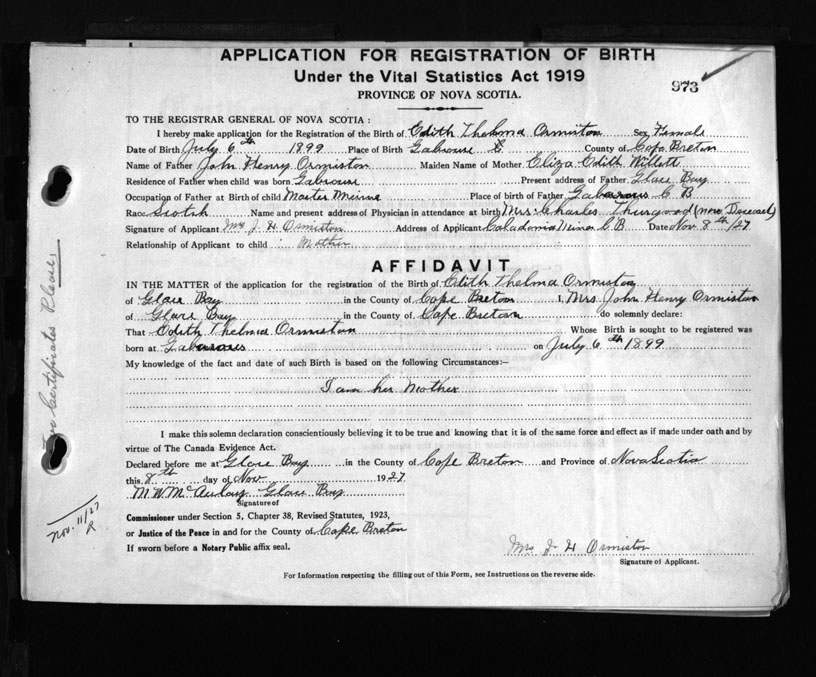 APPLICATION FOR REGISTRATION OF BIRTH
Under the Vital Statistics Act 1919
PROVINCE OF NOVA SCOTIA.
973
TO THE REGISTRAR GENERAL OF NOVA SCOTIA:
I hereby make application for the Registration of the Birth of Edith Thelma Ormiston Sex Female
Date of Birth July 6th 1899 Place of Birth Gabarouse County of Cape Breton
Name of Father John Henry Ormiston Maiden Name of Mother Eliza Edith Willett
Residence of Father when child was born Gabarouse Present address of Father Glace Bay
Occupation of Father at Birth of child Master Place of birth of Father Gabarous C B
Race Scotch Name and present address of Physician in attendance at birth Mrs Charles Thurgood (now Deceased)
Signature of Applicant Mrs J. H Ormiston Address of Applicant Caledonia Mines C B Date Nov 8th/27
Relationship of Applicant to child Mother
AFFIDAVIT
IN THE MATTER of the application for the registration of the Birth of Edith Thelma Ormiston
of Glace Bay in the County of Cape Breton I, Mrs John Henry Ormiston
of Glace Bay in the County of Cape Breton do solemnly declare:
That Edith Thelma Ormiston Whose Birth is sought to be registered was
born at Gabarous on July 6th 1899
My knowledge of the fact and date of such Birth is based on the following Circumstances:—
I am her Mother
I make this solemn declaration conscientiously believing it to be true and knowing that it is of the same force and effect as if made under oath and by
virtue of The Canada Evidence Act.
Declared before me at Glace Bay in the County of Cape Breton and Province of Nova Scotia
this 8th day of Nov 1927
M. W. McAulay Glace Bay
Signature of
Commissioner under Section 5, Chapter 38, Revised Statutes, 1923,
or Justice of the Peace in and for the County of Cape Breton
If sworn before a Notary Public affix seal.
Mrs J H Ormiston
Signature of Applicant.
For Information respecting the filling out of this Form, see Instructions on the reverse side.
Certificates Please.
Nov. 11/27
R